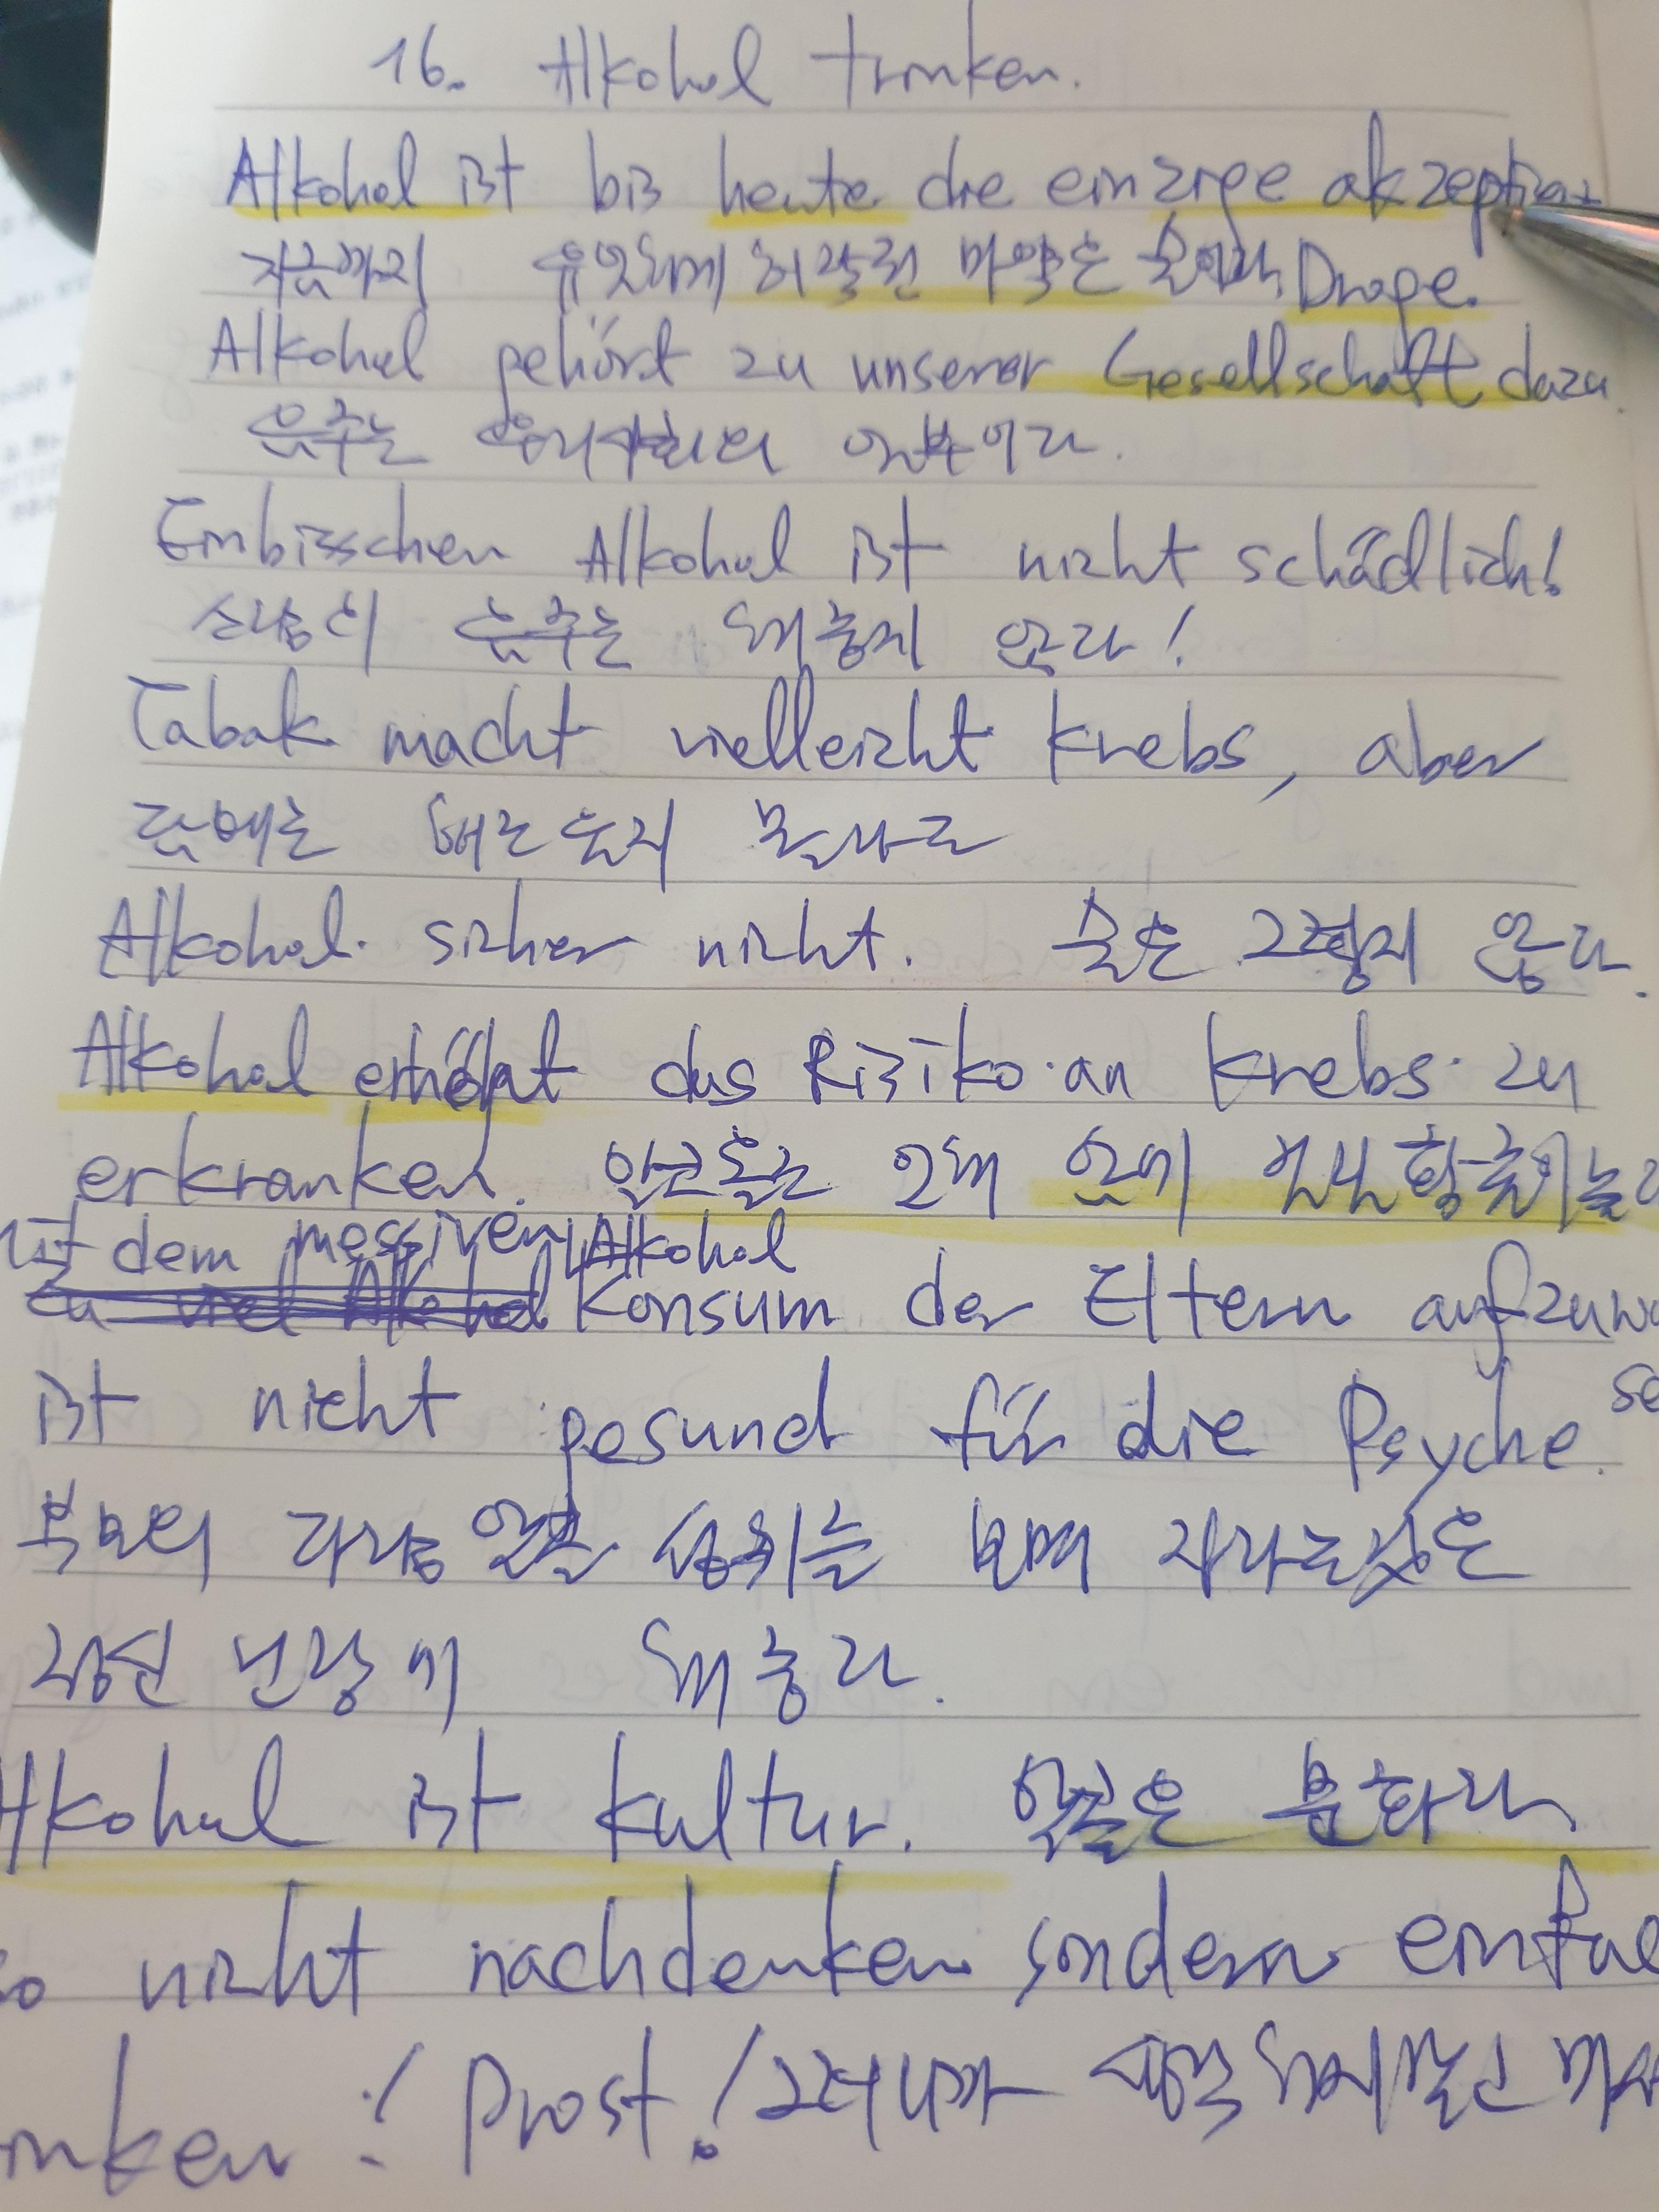 16. Alkohol trinken.
Alkohol ist bis heute die einzige akzeptiert
지금까지 유일하게 허락된 마약은 술이다. Droge.
Alkohol gehört zu unserer Gesellschaft dazu.
음주는 우리사회의 일부이다.
Einbisschen Alkohol ist nicht schädlich!
소량의 음주는 해롭지 않다!
Tabak macht vielleicht Krebs, aber
담배는 해로울지 몰라도
Alkohol sicher nicht. 술은 그렇지 않다.
Alkohol erhöht das Risiko an Krebs zu
erkranken. 알코홀은 암에
dem massiven Alkohol
zu viel Alkohol Konsum der Eltern aufzuwa
ist nicht gesund für die Psyche.
부모의 다량 알콜 섭취를 보며 자라는것은
정신 건강에 해롭다.
Alkohol ist Kultur. 알콜은 문화다
so nicht nachdenken sondern einfac
inken! Prost! 그러니까 생각하지말고 마시